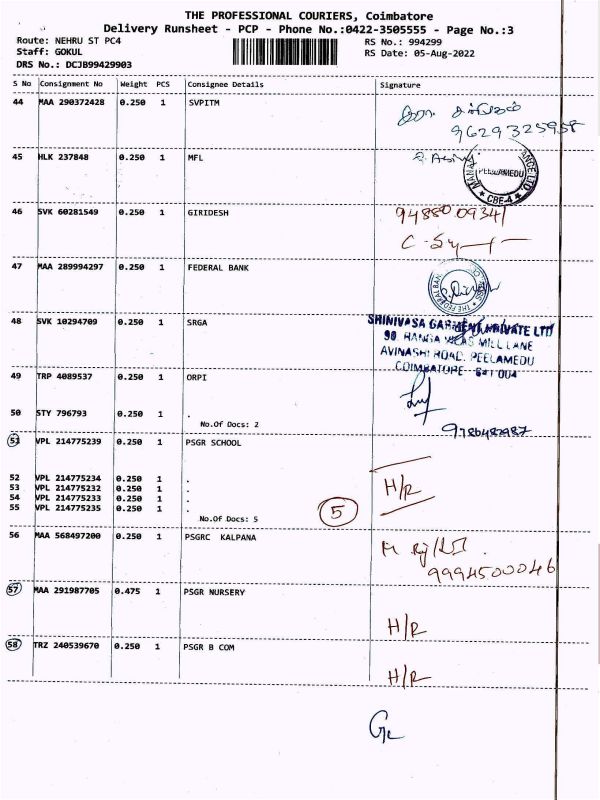 THE PROFESSIONAL COURIERS, Coimbatore
Delivery Runsheet - PCP - Phone No.:0422-3505555 - Page No.:3
Route: NEHRU ST PC4
RS No.: 994299
Staff: GOKUL
RS Date: 05-Aug-2022
DRS No.: DCJB99429903
S No Consignment No Weight PCS Consignee Details Signature
44 MAA 290372428 0.250 1 SVPITM
9629325958
45 HLK 237848 0.250 1 MFL
PEELAMEDU
CBE-4
46 SVK 60281549 0.250 1 GIRIDESH
9488009341
47 MAA 289994297 0.250 1 FEDERAL BANK
THE FEDERAL BANK
48 SVK 10294709 0.250 1 SRGA
SHRINIVASA GARMENT PRIVATE LTD
90, RANGA VILAS MILL LANE
AVINASHI ROAD, PEELAMEDU
COIMBATORE - 641 004
49 TRP 4089537 0.250 1 ORPI
50 STY 796793 0.250 1 .
No.Of Docs: 2
9786482987
51 VPL 214775239 0.250 1 PSGR SCHOOL
52 VPL 214775234 0.250 1 .
53 VPL 214775232 0.250 1 .
54 VPL 214775233 0.250 1 .
55 VPL 214775235 0.250 1 .
No.Of Docs: 5
5
H/R
56 MAA 568497200 0.250 1 PSGRC KALPANA
9994500046
57 MAA 291987705 0.475 1 PSGR NURSERY
H/R
58 TRZ 240539670 0.250 1 PSGR B COM
H/R